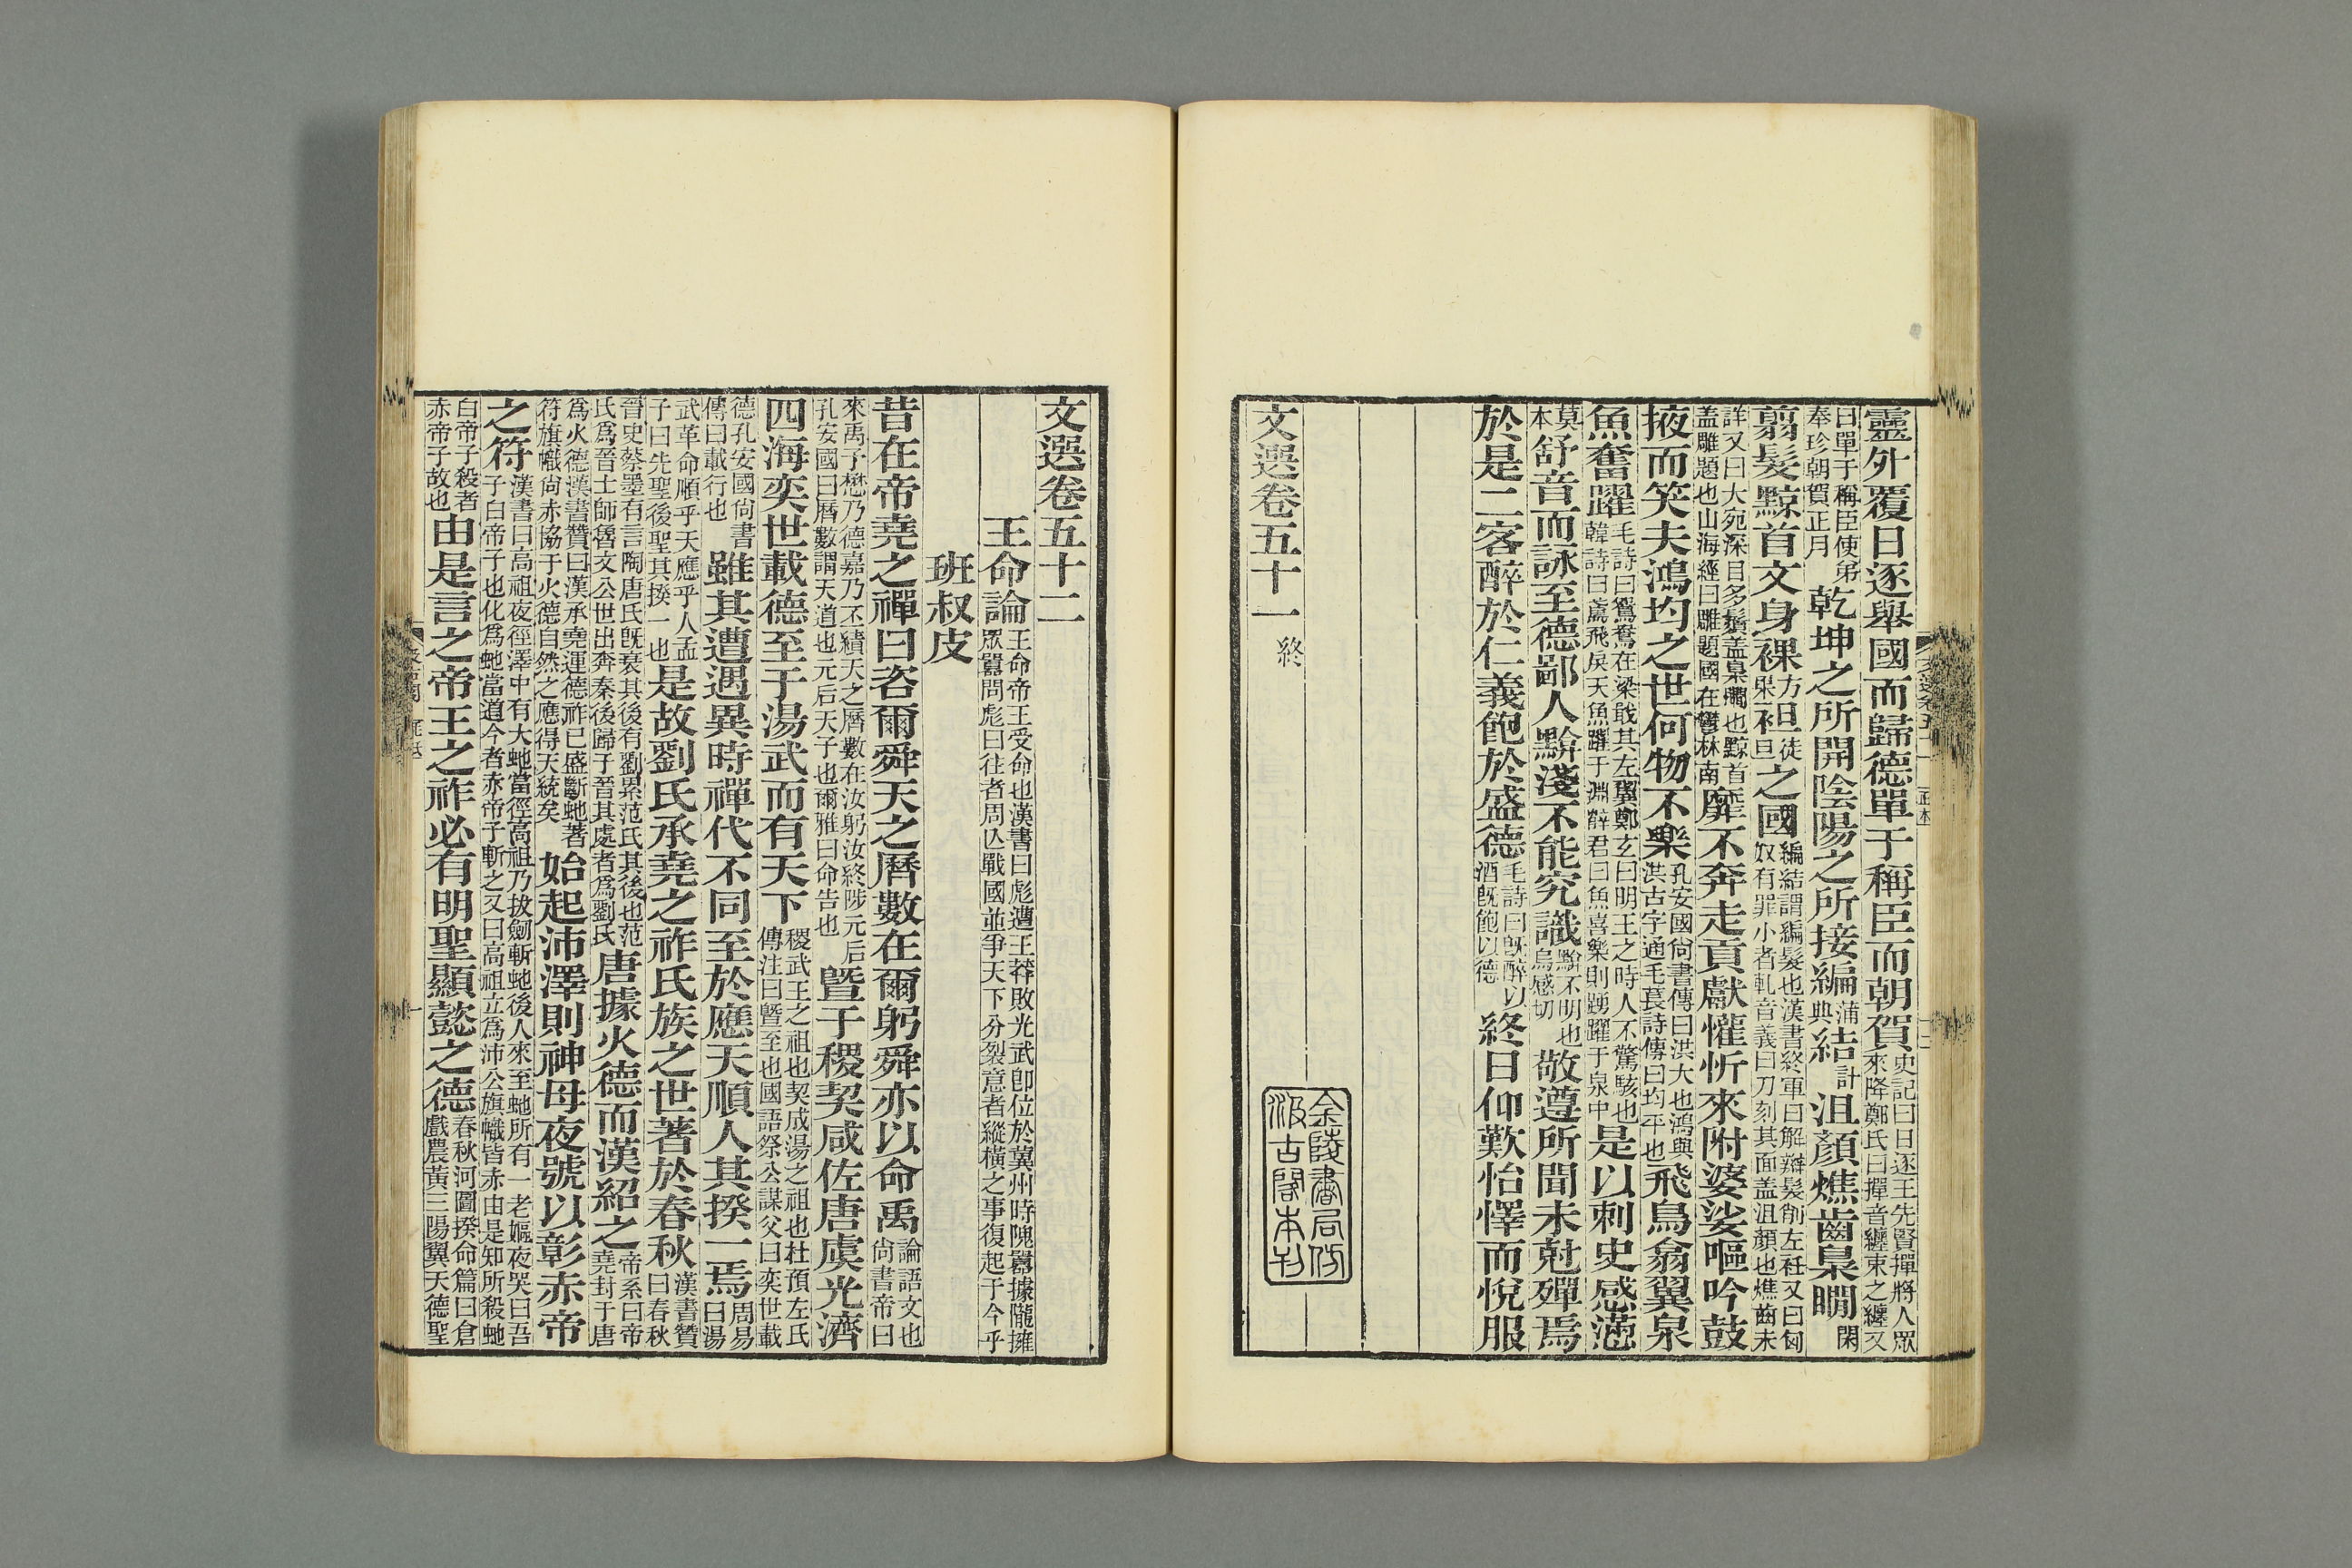 靈外覆日逐舉國而歸德單于稱臣而朝賀史記曰日逐王先賢撣將人眾來降鄭氏曰撣音纏束之纏又
曰單于稱臣使弟奉珍朝賀正月乾坤之所開陰陽之所接編蒲典結計沮顏燋齒梟瞷閑
翦髮黥首文身裸袒徒旦之國編結謂編髮也漢書終軍曰解辮髮削左衽又曰匈奴有罪小者軋音義曰刀刻其面蓋沮顏也燋齒未
詳又曰大宛深目多鬚蓋梟瞷也黥首蓋雕題也山海經曰雕題國在鬱林南靡不奔走貢獻懽忻來附婆娑嘔吟鼓
掖而笑夫鴻均之世何物不樂孔安國尚書傳曰洪大也鴻與洪古字通毛萇詩傳曰均平也飛鳥翕翼泉
魚奮躍毛詩曰鴛鴦在梁戢其左翼鄭玄曰明王之時人不驚駭也韓詩曰鳶飛戾天魚躍于淵薛君曰魚喜樂則踴躍于泉中是以刺史感懣
莫本舒音而詠至德鄙人黭淺不能究識黭不明也烏感切敬遵所聞未尅殫焉
於是二客醉於仁義飽於盛德毛詩曰旣醉以酒旣飽以德終日仰歎怡懌而悅服
文選卷五十一 終
金陵書局仿
汲古閣本刊
文選卷五十二
王命論王命帝王受命也漢書曰彪遭王莽敗光武卽位於冀州時隗囂據隴擁眾囂問彪曰往者周亾戰國並爭天下分裂意者縱橫之事復起于今乎
班叔皮
昔在帝堯之禪曰咨爾舜天之曆數在爾躬舜亦以命禹論語文也尙書帝曰
來禹予懋乃德嘉乃丕績天之曆數在汝躬汝終陟元后孔安國曰曆數謂天道也元后天子也爾雅曰命告也曁于稷契咸佐唐虞光濟
四海奕世載德至于湯武而有天下稷武王之祖也契成湯之祖也杜預左氏傳注曰曁至也國語祭公謀父曰奕世載
德孔安國尙書傳曰載行也雖其遭遇異時禪代不同至於應天順人其揆一焉周易曰湯
武革命順乎天應乎人孟子曰先聖後聖其揆一也是故劉氏承堯之祚氏族之世著於春秋漢書贊曰春秋
晉史蔡墨有言陶唐氏旣衰其後有劉累范氏其後也范氏爲晉士師魯文公世出奔秦後歸于晉其處者爲劉氏唐據火德而漢紹之帝系曰帝堯封于唐
爲火德漢書贊曰漢承堯運德祚已盛斷虵著符旗幟尙赤協于火德自然之應得天統矣始起沛澤則神母夜號以彰赤帝
之符漢書曰高祖夜徑澤中有大虵當徑高祖乃拔劍斬虵後人來至虵所有一老嫗夜哭曰吾子白帝子也化爲虵當道今者赤帝子斬之又曰高祖立爲沛公旗幟皆赤由是知所殺虵
白帝子殺者赤帝子故也由是言之帝王之祚必有明聖顯懿之德春秋河圖揆命篇曰倉戲農黃三陽翼天德聖